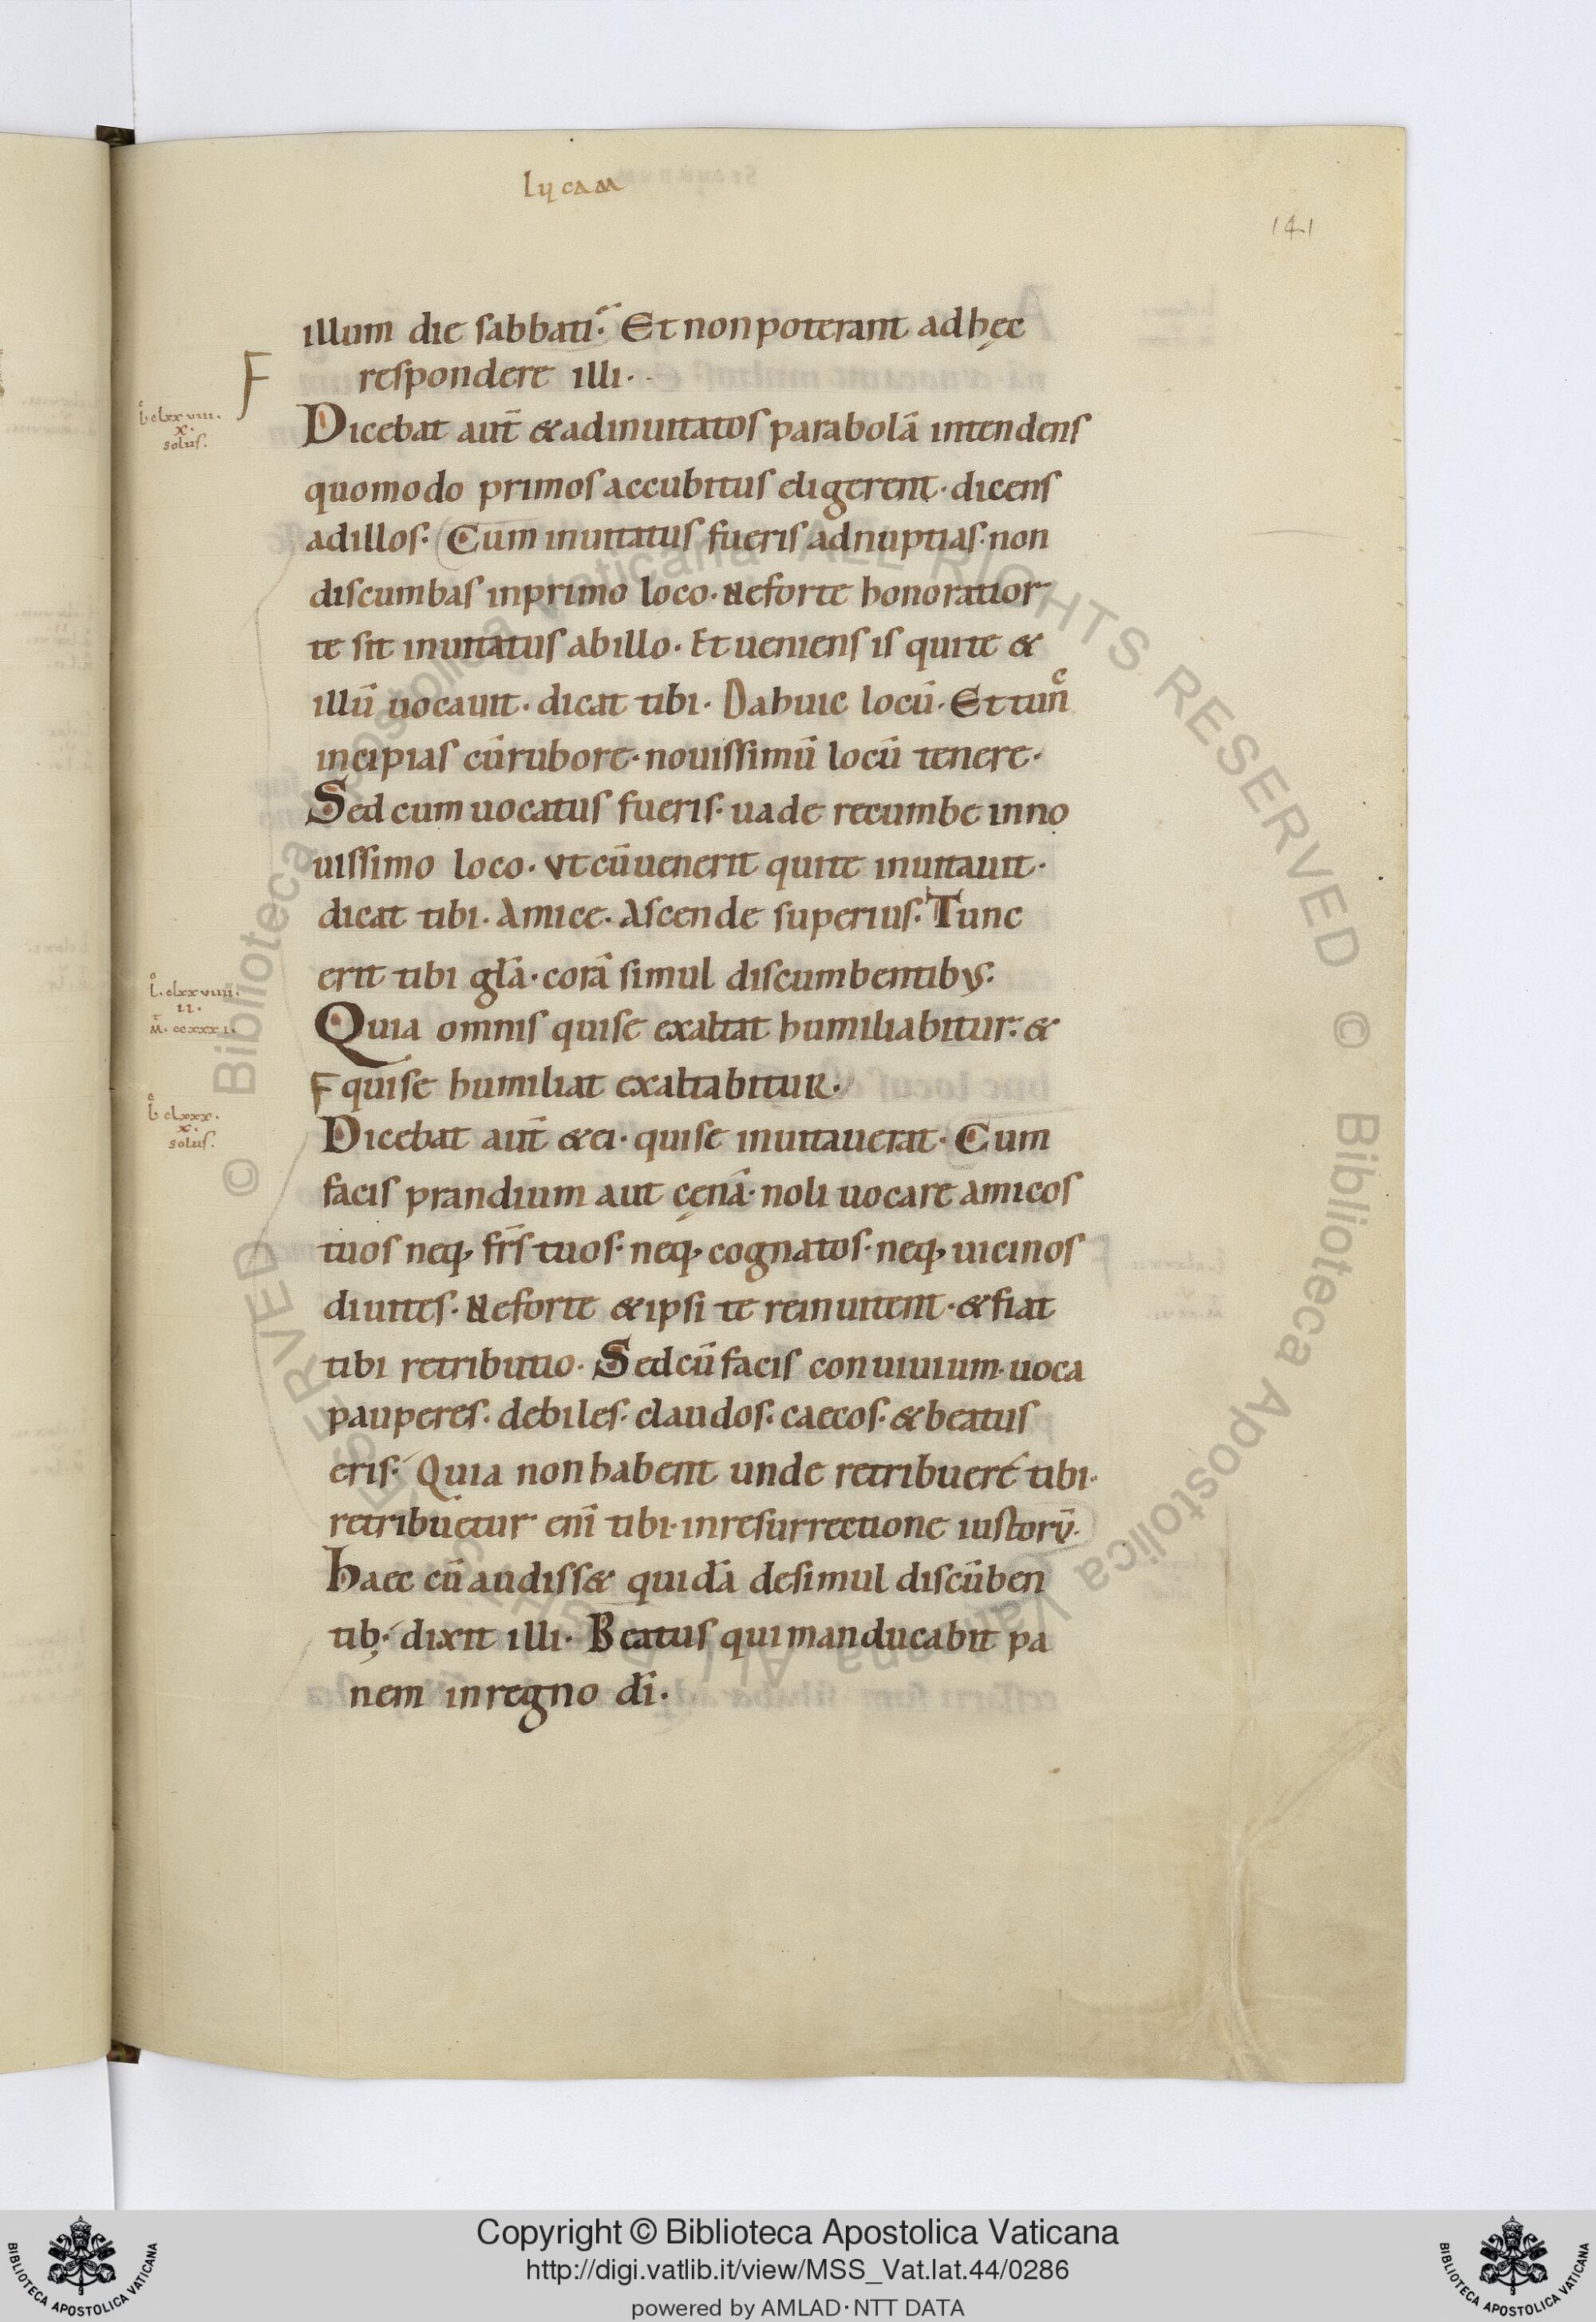 Lycam
141
illum die sabbati. Et non poterant ad hęc
F
respondere illi.
L clxxviii.
x.
solus.
Dicebat aut̄ & ad inuitatos parabolā intendens
quomodo primos accubitus eligerent. dicens
ad illos. Cum inuitatus fueris ad nuptias. non
discumbas in primo loco. Ne forte honoratior
te sit inuitatus ab illo. Et ueniens is qui te &
illū uocauit. dicat tibi. Da huic locū. Et tunc
incipias cū rubore. nouissimū locū tenere.
Sed cum uocatus fueris. uade recumbe in no
uissimo loco. Vt cū uenerit qui te inuitauit.
dicat tibi. Amice. Ascende superius. Tunc
erit tibi glā. corā simul discumbentibus.
L. clxxviiii.
ii.
M. ccxxxi.
Quia omnis qui se exaltat humiliabitur. &
F qui se humiliat exaltabitur.
L clxxx.
x.
solus.
Dicebat aut̄ & ei. qui se inuitauerat. Cum
facis prandium aut cęnā. noli uocare amicos
tuos neq; frs̄ tuos. neq; cognatos. neq; uicinos
diuites. Ne forte & ipsi te reinuitent. & fiat
tibi retributio. Sed cū facis conuiuium. uoca
pauperes. debiles. claudos. caecos. & beatus
eris. Quia non habent unde retribuere tibi.
retribuetur eni̅ tibi. in resurrectione iustorū.
Haec cū audiss& quidā de simul discūben
tib; dixit illi. Beatus qui manducabit pa
nem in regno di̅.
© Biblioteca Apostolica Vaticana ALL RIGHTS RESERVED
© Biblioteca Apostolica Vaticana ALL RIGHTS RESERVED
Copyright © Biblioteca Apostolica Vaticana
http://digi.vatlib.it/view/MSS_Vat.lat.44/0286
powered by AMLAD·NTT DATA
BIBLIOTECA APOSTOLICA VATICANA
BIBLIOTECA APOSTOLICA VATICANA